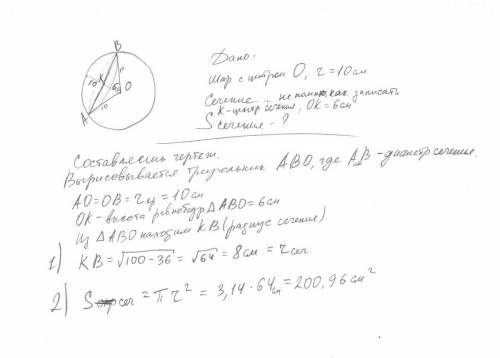 B
10
K
6
O
10
A
Дано:
Шар с центром О, r = 10 см
Сечение .. не помню, как записать
К-центр сечения, ОК = 6 см
S сечения - ?
Составляешь чертеж.
Вырисовывается треугольник АВО, где АВ - диаметр сечения.
АО = ОВ = r = 10 см
ОК - высота равнобедр △ АВО = 6 см
Из △ АВО находим КВ (радиус сечения)
1) КВ = √100 - 36 = √64 = 8 см = r сеч
2) S сеч = π r² = 3,14 · 64 = 200,96 см²